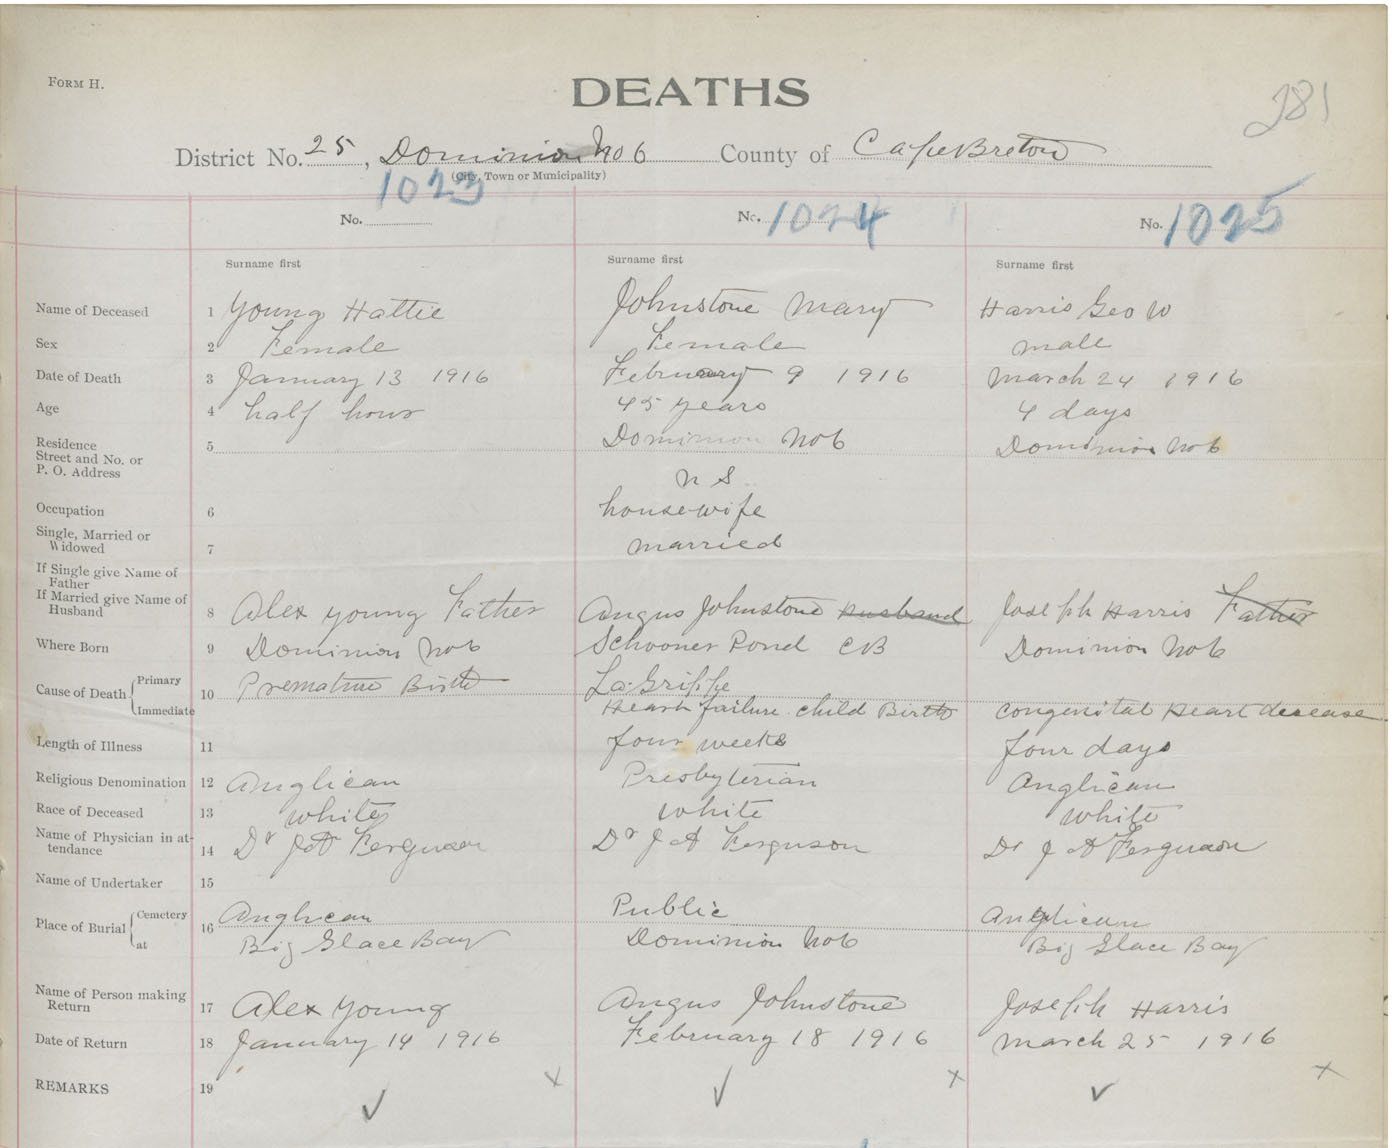 FORM H.
DEATHS
281
District No. 25, Dominion No 6 County of Cape Breton
(City, Town or Municipality)
No. 1023 No. 1024 No. 1025
Surname first Surname first Surname first
Name of Deceased 1 Young Hattie Johnstone Mary Harris Geo W
Sex 2 Female Female male
Date of Death 3 January 13 1916 February 9 1916 March 24 1916
Age 4 half hour 45 years 4 days
Residence Street and No. or P. O. Address 5 Dominion No 6 Dominion No 6
N S
Occupation 6 housewife
Single, Married or Widowed 7 married
If Single give Name of Father
If Married give Name of Husband 8 Alex Young Father Angus Johnstone Husband Joseph Harris Father
Where Born 9 Dominion No 6 Schooner Pond CB Dominion No 6
Cause of Death Primary 10 Premature Birth La Grippe
Immediate Heart failure child Birth Congenital Heart desease
Length of Illness 11 four weeks four days
Religious Denomination 12 Anglican Presbyterian Anglican
Race of Deceased 13 white white white
Name of Physician in attendance 14 Dr J A Ferguson Dr J A Ferguson Dr J A Ferguson
Name of Undertaker 15
Place of Burial Cemetery 16 Anglican Public Anglican
at Big Glace Bay Dominion No 6 Big Glace Bay
Name of Person making Return 17 Alex Young Angus Johnstone Joseph Harris
Date of Return 18 January 14 1916 February 18 1916 March 25 1916
REMARKS 19